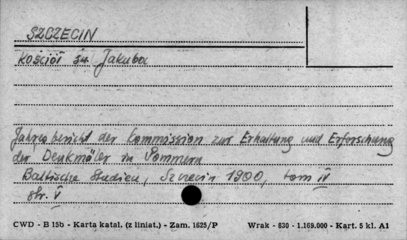 SZCZECIN
Kościół św Jakuba
Jahresbericht der Kommission zur Erhaltung und Erforschung
der Denkmäler in Pommern
Baltische Studien, Szczecin 1900, tom IV
str. V
CWD - B 15b - Karta katal. (z liniat.) - Zam. 1625/P Wrak - 830 - 1.169.000 - Kart. 5 kl. A1